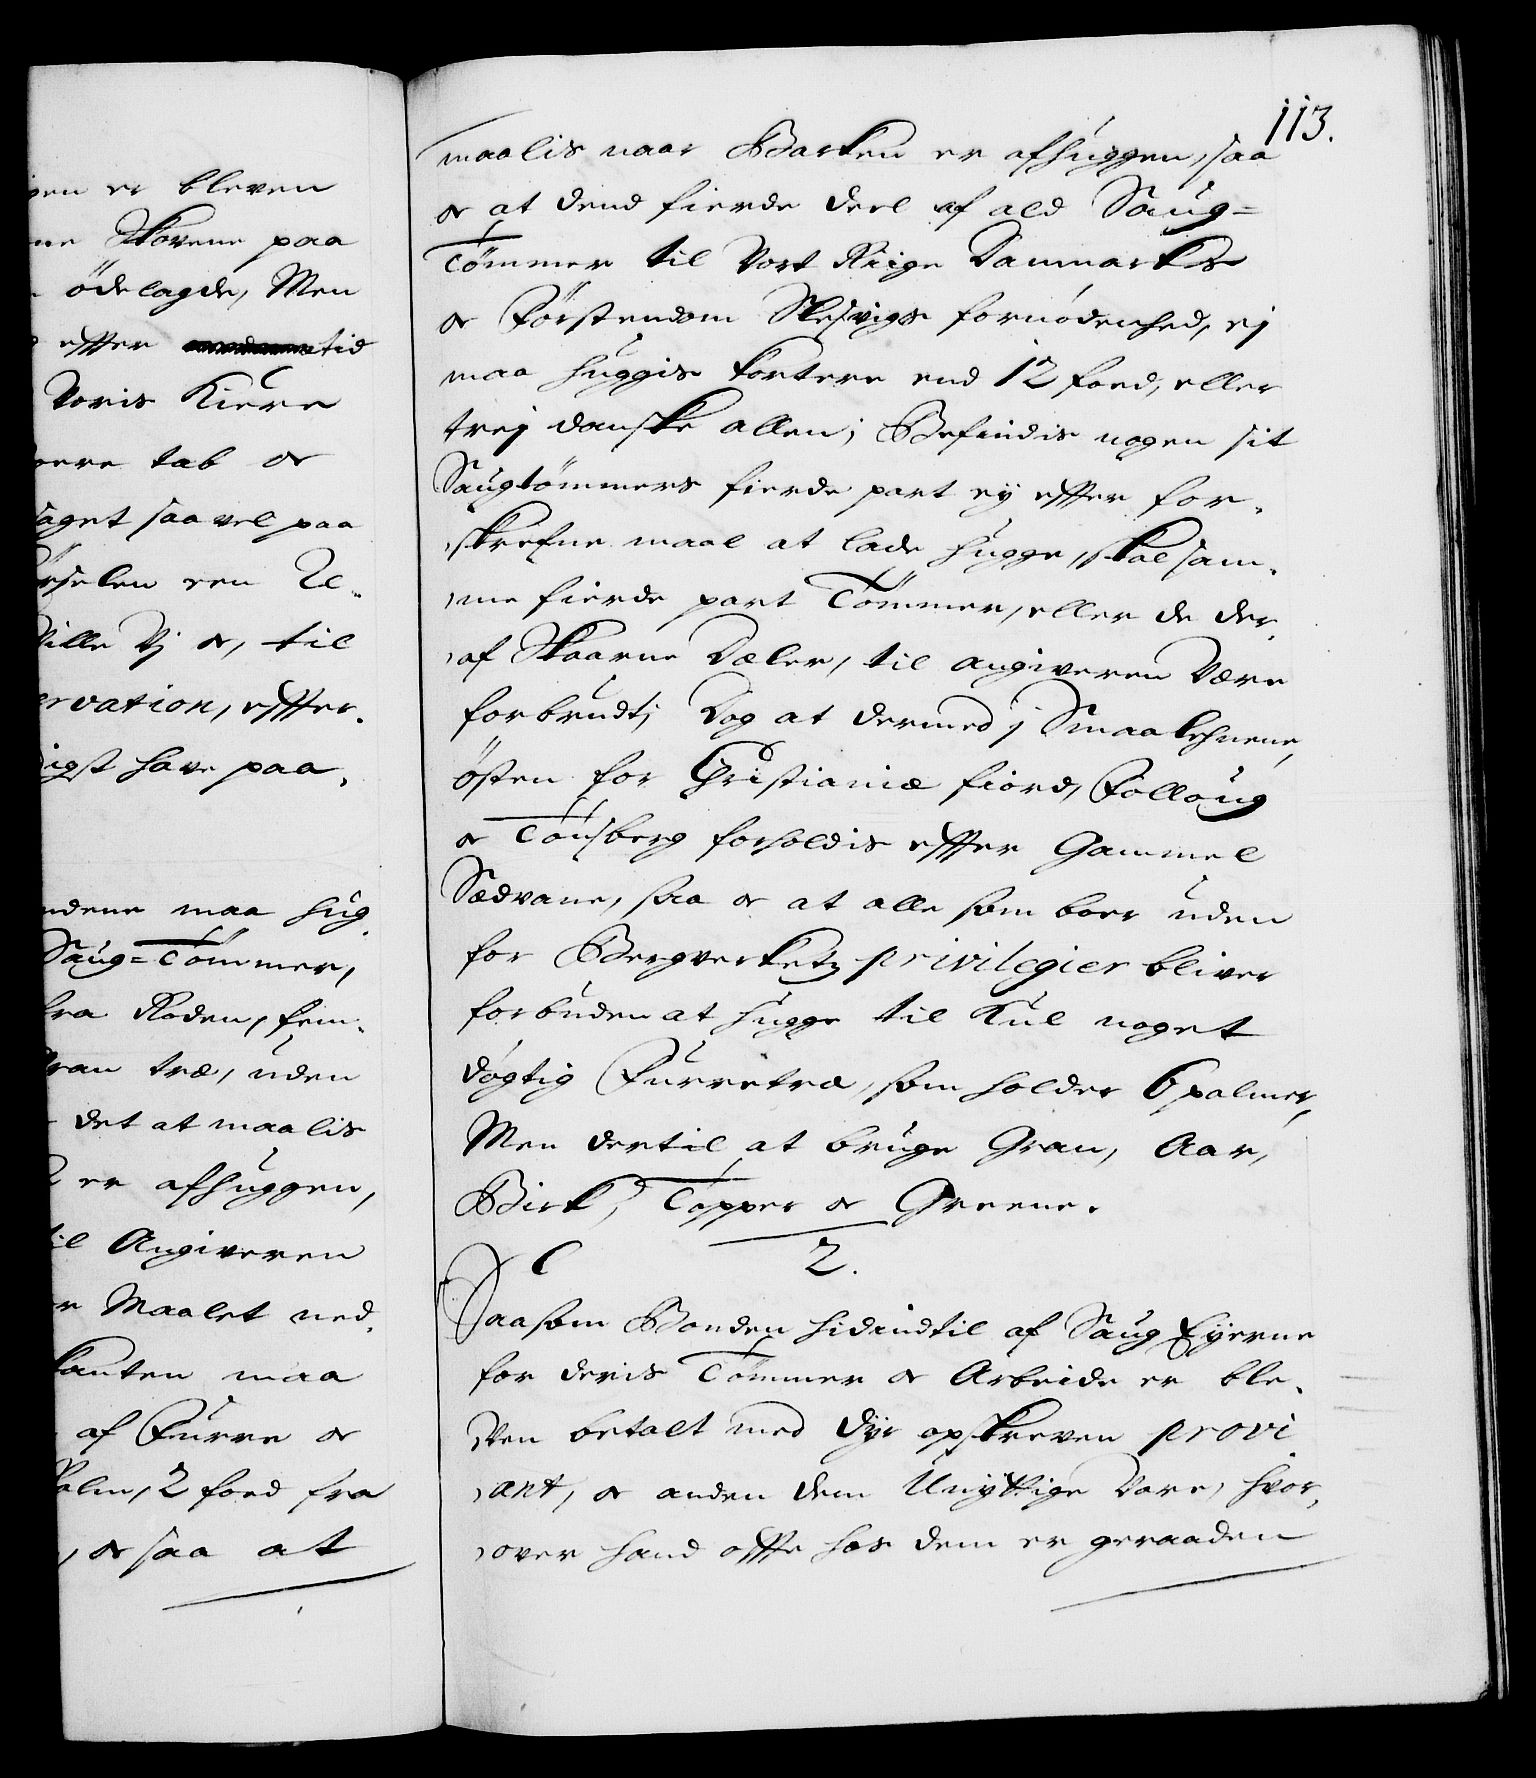 gen er bleven
ne Skovene paa
ödelagde, Men
effter tid
Voris Kiere
tab oc
aget saa vel paa
rselen een Ul-
Ville Vj oc, til
ervation, effter-
digst have paa-
ndene maa hug
Saug=Tömmer,
fra Roden, fem-
Gran træ, uden
det at maalis
er afhuggen,
til Angiveren
er Maalet ned-
kanten maa
af Furre oc
Palm, 2 foed fra
, oc saa at
113.
maalis naar Barken er afhuggen, saa
oc at dend fierde deel af ald Saug=
Tömmer til Vort Riige Danmarks
oc Förstendom Slesvigs fornödenhed, ej
maa huggis kortere end 12 foed, eller
trej danske allen; Befindis nogen sit
Saugtömmers fierde part ey effter for-
skrefne maal at lade hugge, skal sam-
me fierde part Tömmer, eller de der-
af Skaarne Dæler, til angiveren Være
forbrudt; Dog at dermed j Smaalehnene,
östen for Christianiæ fiord, Follöug
oc Tönsberg forholdis effter Gammel
Sædvane, saa oc at alle som boer uden
for Bergverketz privilegier bliver
forbuden at hugge til Kul noget
dögtig Furretræ, som holder 6 palmer,
Men dertil at bruge Gran, Aar,
Birk, Topper oc Greene.
2.
Saasom Bonden hidindtil af Saug Eyerne
for deris Tömmer oc Arbeide er ble-
ven betalt med dyr opskreven provi
ant, oc anden dem Unyttige Vare, hvor-
over hand offte hos dem er geraaden